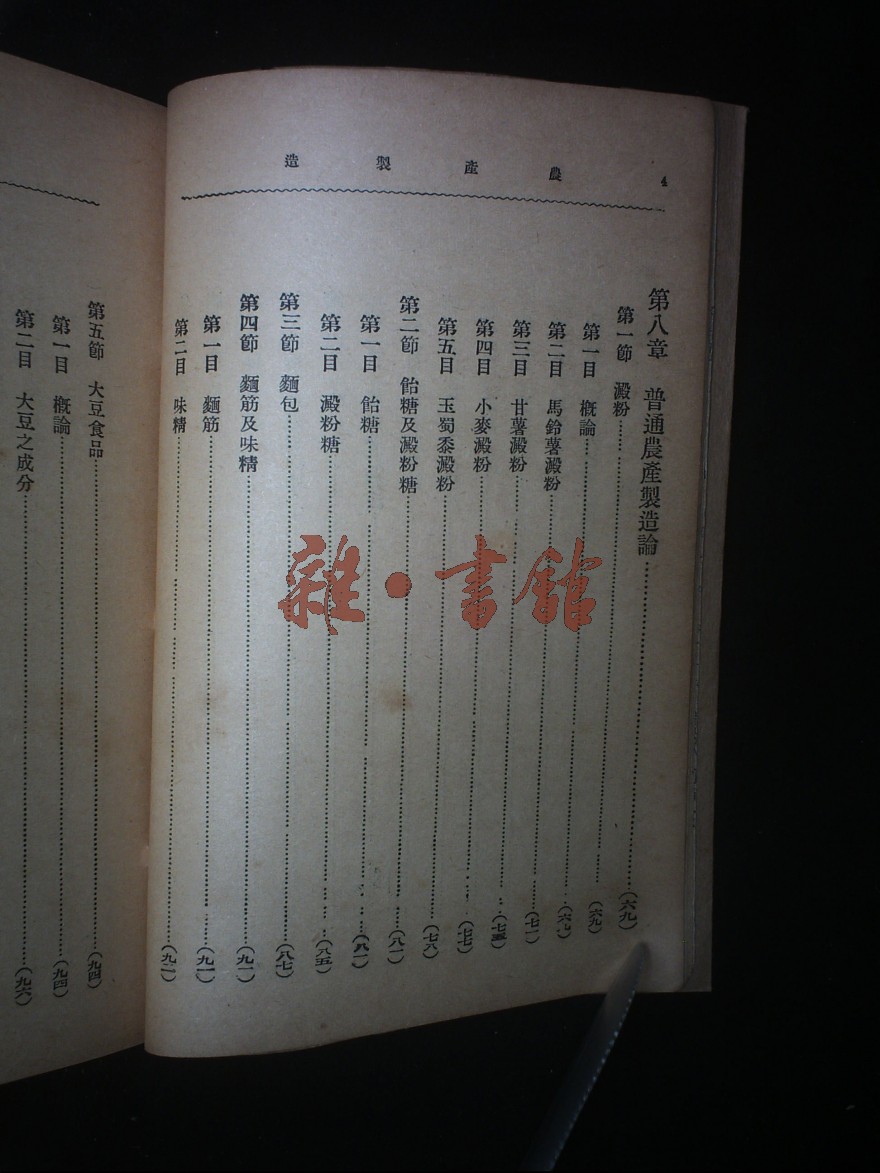 4 農產製造
第八章 普通農產製造論……(六九)
第一節 澱粉……(六九)
第一目 概論……(六九)
第二目 馬鈴薯澱粉……(七一)
第三目 甘薯澱粉……(七五)
第四目 小麥澱粉……(七七)
第五目 玉蜀黍澱粉……(七八)
第二節 飴糖及澱粉糖……(八一)
第一目 飴糖……(八一)
第二目 澱粉糖……(八五)
第三節 麵包……(八七)
第四節 麵筋及味精……(九一)
第一目 麵筋……(九一)
第二目 味精……(九二)
第五節 大豆食品……(九四)
第一目 概論……(九四)
第二目 大豆之成分……(九六)
雜·書館